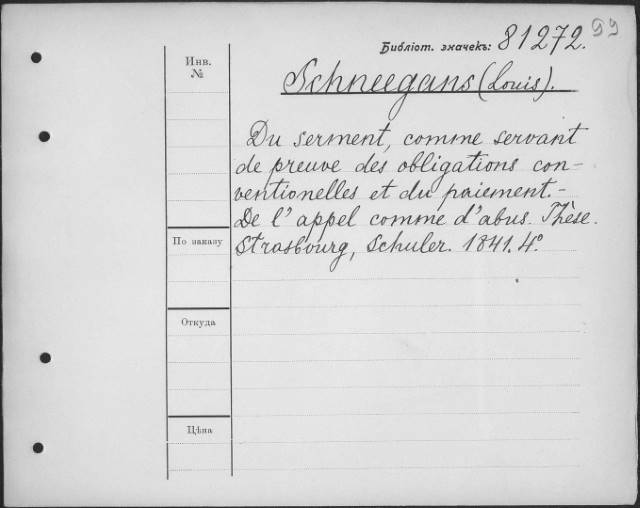 Библіот. значекъ: 81272. 99
Инв.
№
Schneegans (Louis).
Du serment, comme servant
de preuve des obligations con-
ventionelles et du paiement.-
De l'appel comme d'abus. Thèse.
Strasbourg, Schuler. 1841. 4°
По заказу
Откуда
Цѣна